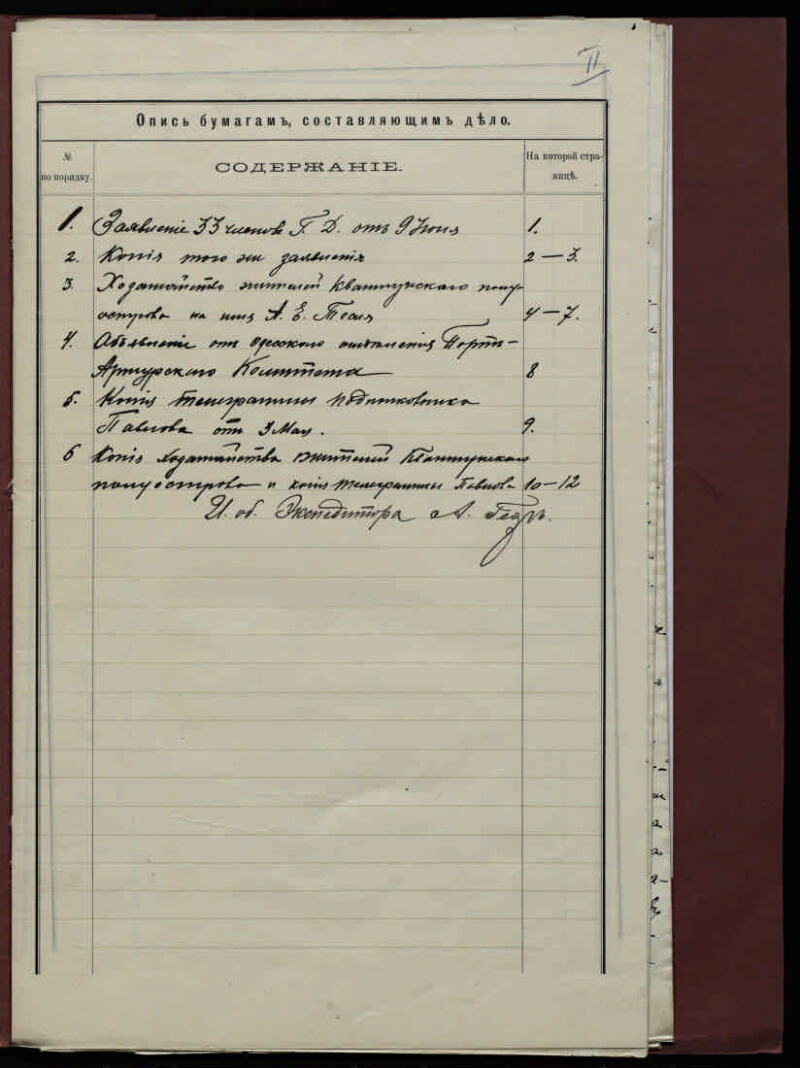 II
Опись бумагамъ, составляющимъ дѣло.
№ по порядку.
СОДЕРЖАНІЕ.
На которой страницѣ.
1. Заявленіе 33 членовъ Г. Д. отъ 9 Іюня 1.
2. Копія того же заявленія 2 — 3.
3. Ходатайство жителей Квантунскаго полу-
острова на имя А. Е. 4 — 7.
4. Объявленіе отъ Одесскаго отдѣленія Портъ-
Артурскаго Комитета 8
5. Копія телеграммы Подполковника
Павлова отъ 3 Мая. 9.
6 Копія ходатайства жителей Квантунскаго
полуострова и копія телеграммы Павлова 10—12
И. об. Экспедитора А.